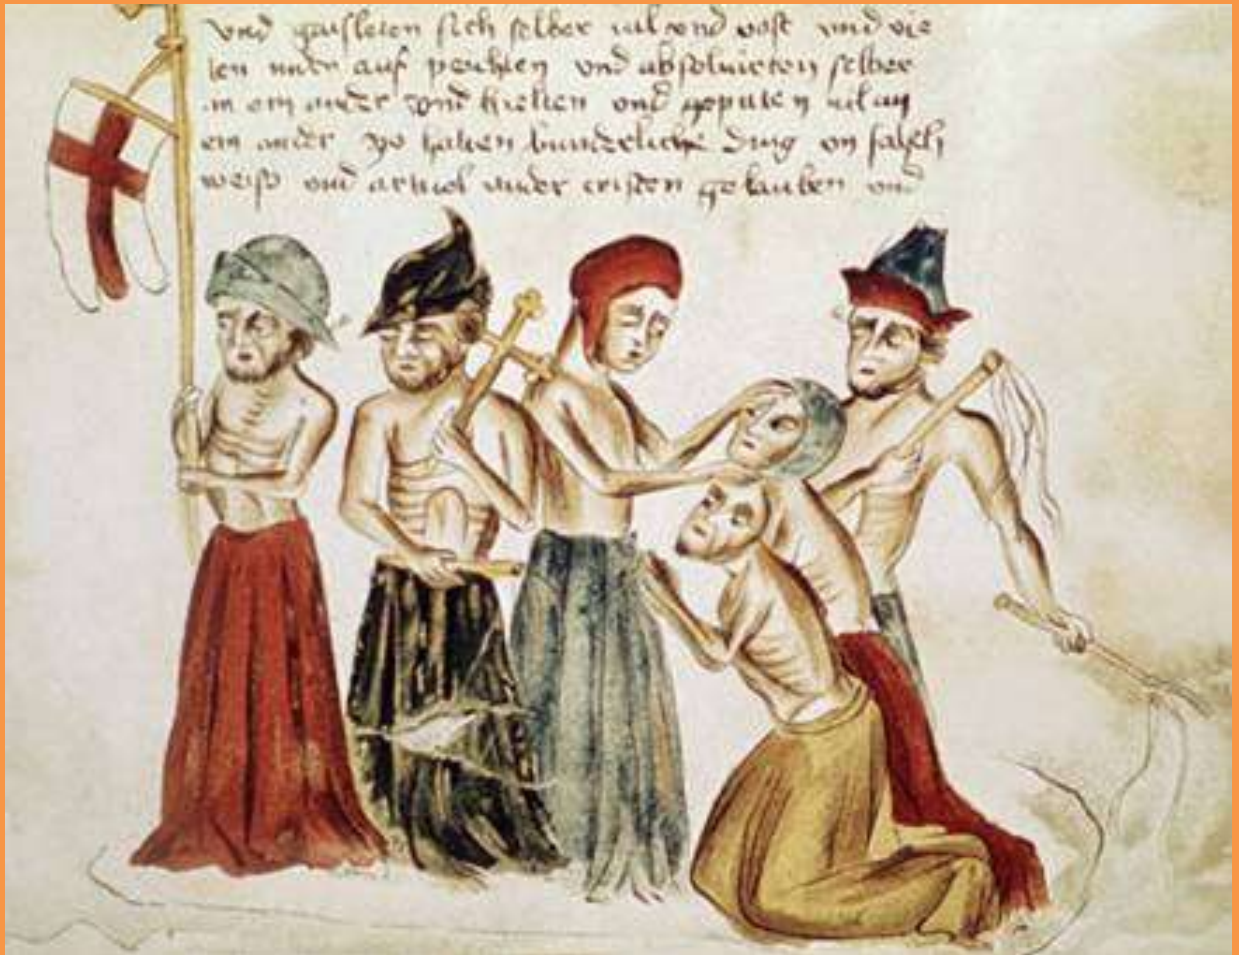 vnd gaisleten sich selber uil vnd vost vnd vie
len nider auf peichten vnd absoluirten selber
an ein ander vnd hielten vnd geputen uil an
ein ander yo haten wunderliche ding vn falsch
weiß vnd artickel wider cristen gelauben vnd